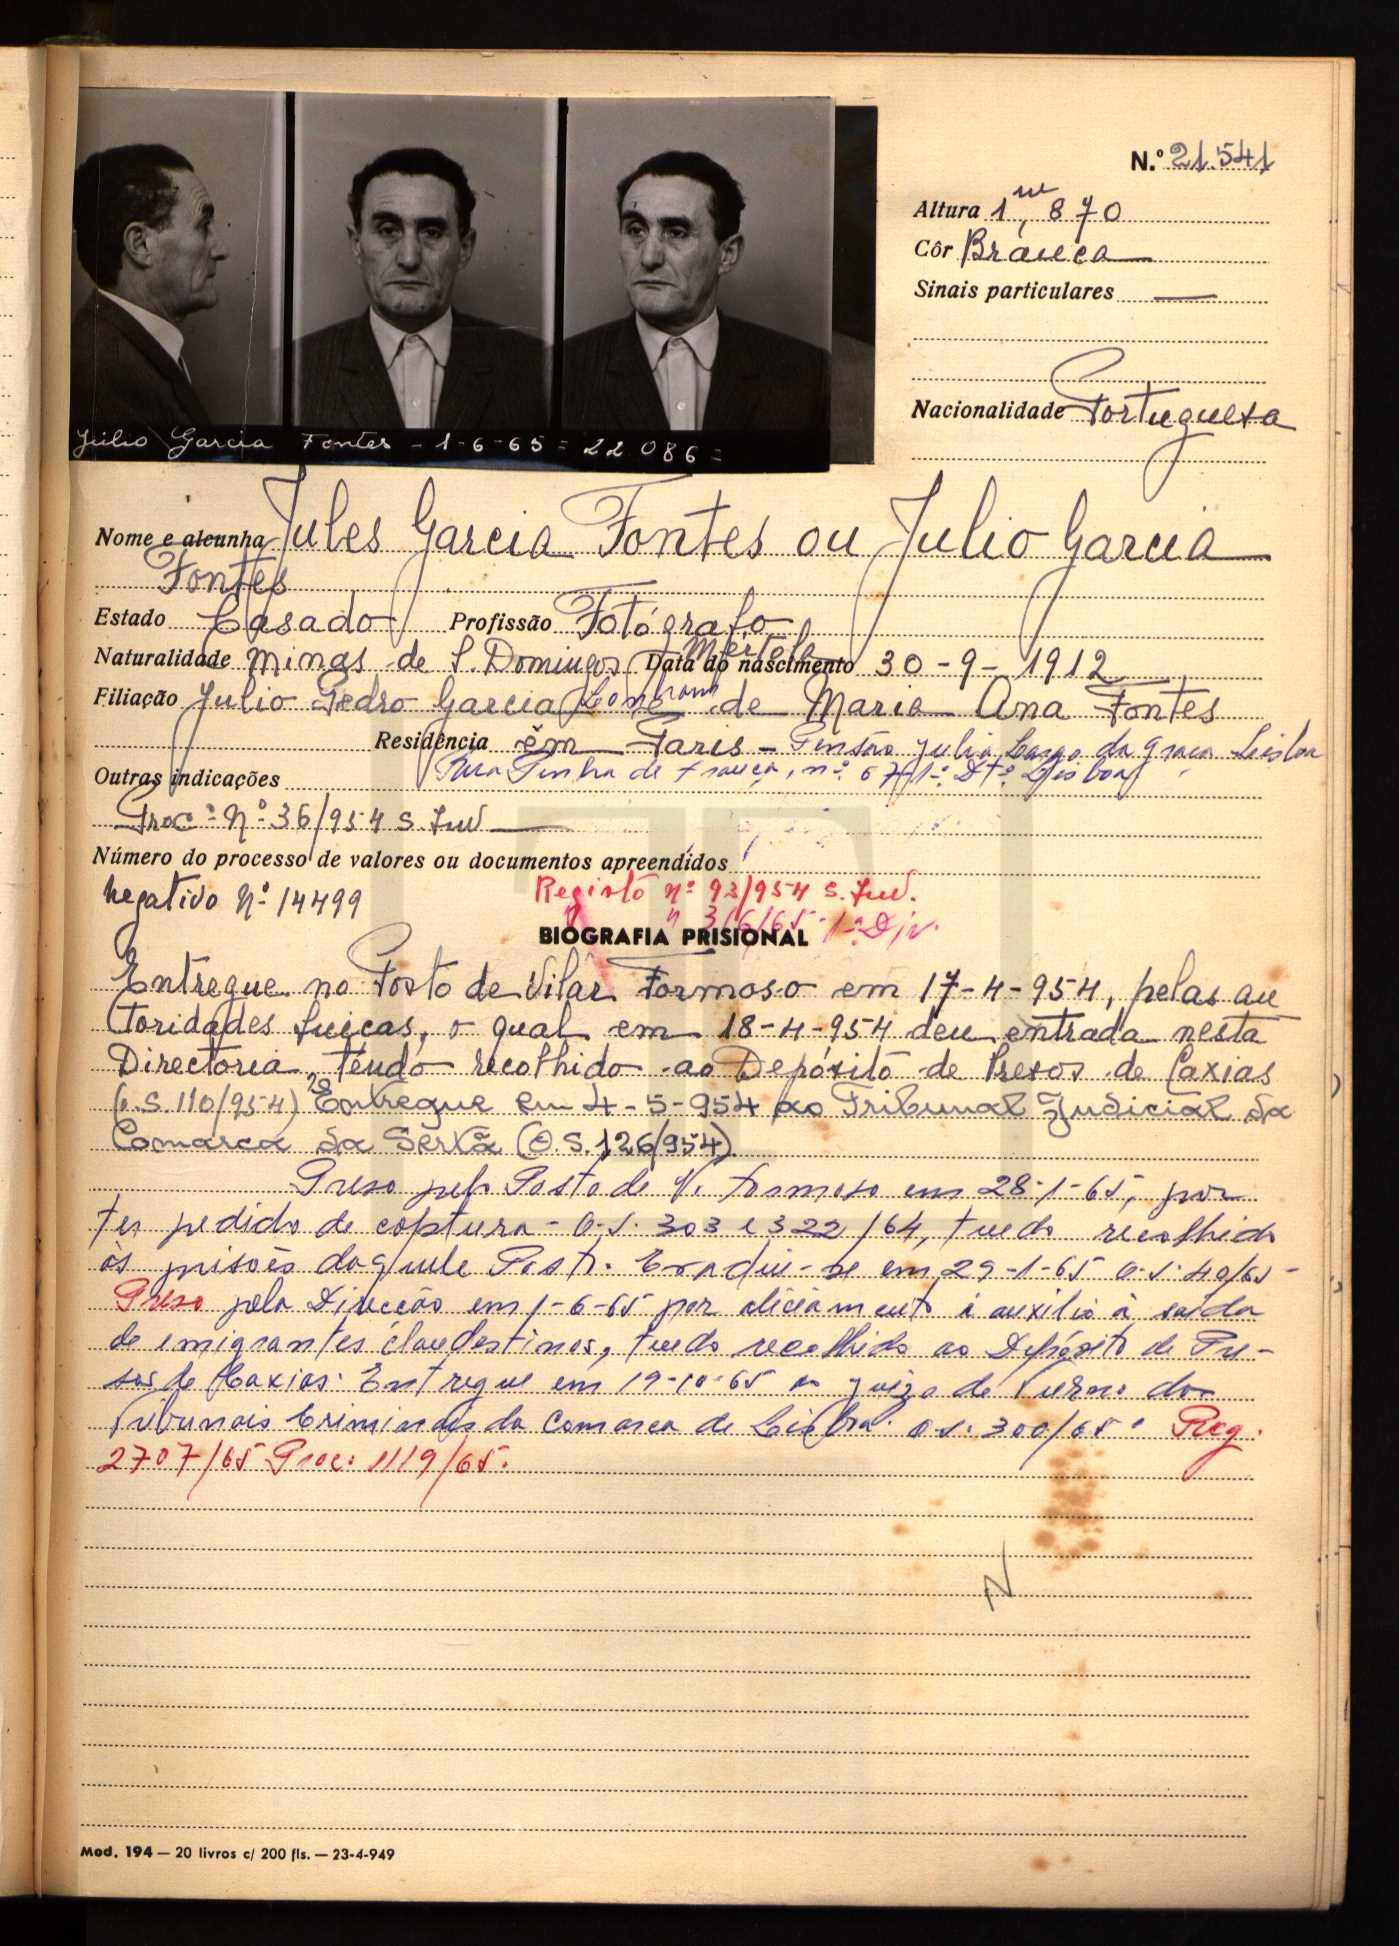 N.º 21.541
Altura 1,m870
Côr Branca
Sinais particulares —
Nacionalidade Portuguesa
Julio Garcia Fontes - 1-6-65 = 22 086 =
Nome e alcunha Jules Garcia Fontes ou Julio Garcia
Fontes
Estado Casado Profissão Fotógrafo
Naturalidade Minas de S. Domingos Mertola Data do nascimento 30-9-1912
Filiação Julio Pedro Garcia de Maria Ana Fontes
Residência em Paris - Pensão Julia Largo da Graça Lisboa
Rua Penha de França, nº 67-1º Dtº Lisboa
Outras indicações
Procº Nº 36/954 S. Inv
Número do processo de valores ou documentos apreendidos
Negativo Nº 14499
Registo nº 93/954 S. Inv.
" " 316/65-1ª Div.
BIOGRAFIA PRISIONAL
Entregue no Posto de Vilar Formoso em 17-4-954, pelas au
toridades suiças, o qual em 18-4-954 deu entrada nesta
Directoria, tendo recolhido ao Depósito de Presos de Caxias
(O.S. 110/954) Entregue em 4-5-954 ao Tribunal Judicial da
Comarca da Sertã (O.S. 126/954).
Preso pelo Posto de V. Formoso em 28-1-65, por
ter pedido de captura - O.S. 303 e 322/64, tendo recolhido
às prisões daquele Posto. Evadiu-se em 29-1-65 O.S. 40/65 -
Preso pela Direcção em 1-6-65 por aliciamento e auxilio à saída
de emigrantes clandestinos, tendo recolhido ao Depósito de Pre-
sos de Caxias. Entregue em 19-10-65 ao juizo de Turno dos
Tribunais Criminais da Comarca de Lisboa. O.S. 300/65. Reg.
2707/65 Proc. 1119/65.
N
Mod. 194 — 20 livros c/ 200 fls. — 23-4-949